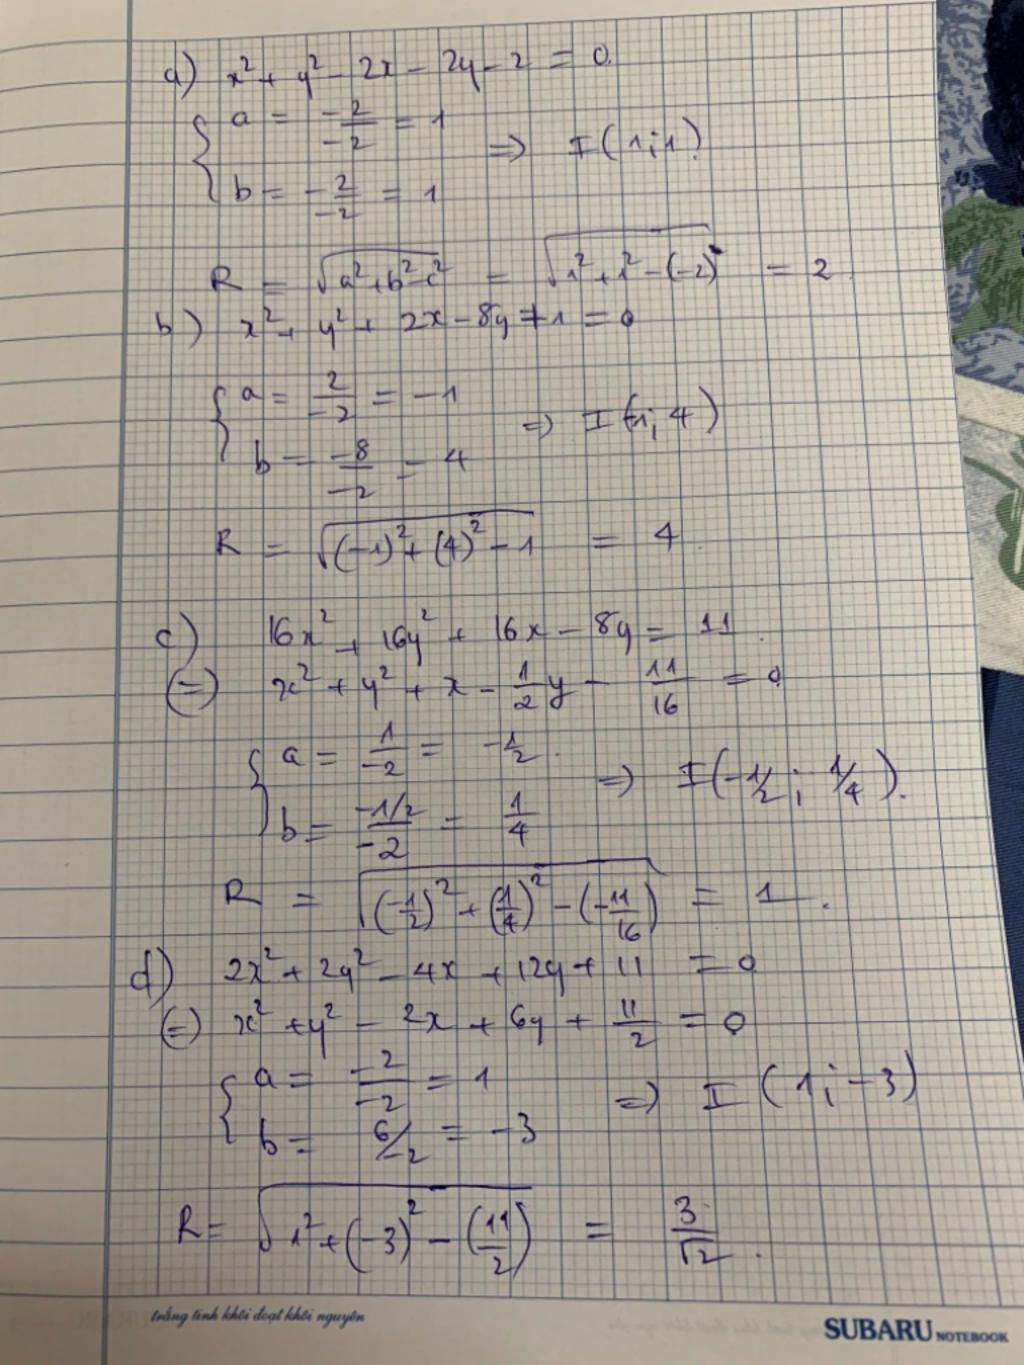 a) x² + y² - 2x - 2y - 2 = 0.
{ a = -2/-2 = 1
=> I(1;1)
b = -2/-2 = 1
R = √(a² + b² - c²) = √(1² + 1² - (-2)) = 2
b) x² + y² + 2x - 8y + 1 = 0
{ a = 2/-2 = -1
=> I(-1; 4)
b = -8/-2 = 4
R = √((-1)² + (4)² - 1) = 4.
c) 16x² + 16y² + 16x - 8y = 11.
(=) x² + y² + x - 1/2 y - 11/16 = 0
{ a = 1/-2 = -1/2.
=> I(-1/2; 1/4).
b = -1/2/-2 = 1/4
R = √((-1/2)² + (1/4)² - (-11/16)) = 1.
d) 2x² + 2y² - 4x + 12y + 11 = 0
(=) x² + y² - 2x + 6y + 11/2 = 0
{ a = -2/-2 = 1
=> I(1; -3)
b = 6/-2 = -3
R = √(1² + (-3)² - (11/2)) = 3/√2.
trắng tinh khôi đoạt khôi nguyên
SUBARU NOTEBOOK